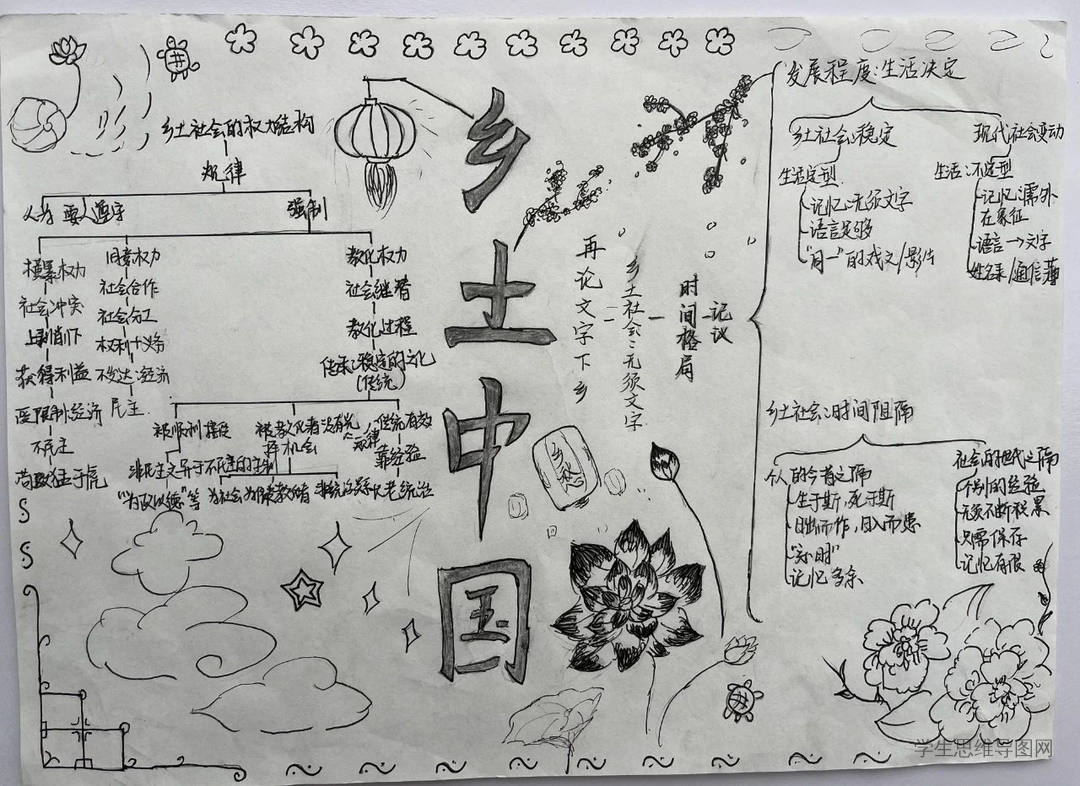 乡土中国
乡土社会的权力结构
规律
人为 要人遵守
强制
横暴权力
社会冲突
上剥削下
获得利益
受限制:经济
不民主
苛政猛于虎
同意权力
社会合作
社会分工
权利+义务
不发达:经济
民主
教化权力
社会继替
教化过程
传承:稳定的文化
(传统)
被教化者没有选
择机会
传统有效
靠经验
非民主又异于不民主的专制
再论文字下乡
乡土社会:无须文字
时间格局
记忆
乡愁
发展程度:生活决定
乡土社会:稳定
生活定型
记忆:无须文字
语言足够
"同一"的戏文/影片
现代社会变动
生活:不定型
记忆:需外
在象征
语言→文字
姓名录/通信薄
乡土社会:时间阻隔
个人的今昔之隔
生于斯,死于斯
日出而作,日入而息
记忆多余
社会的世代之隔
个别的经验
无须不断积累
只需保存
记忆有限
学生思维导图网